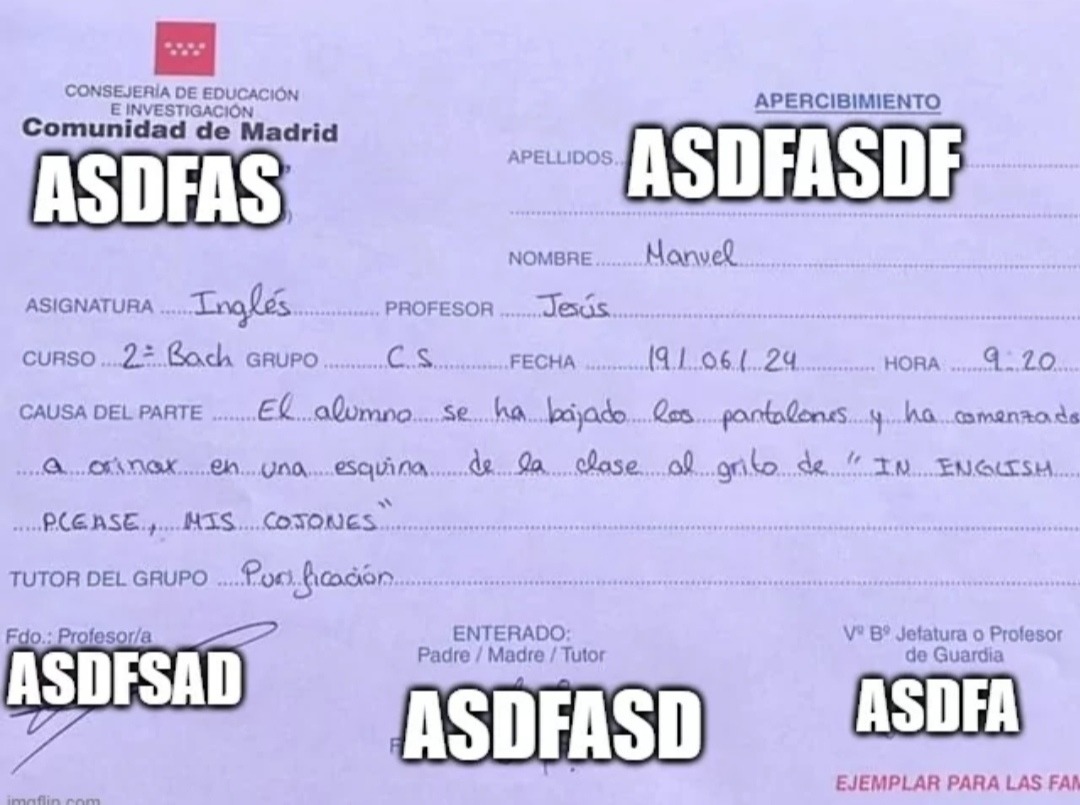 CONSEJERÍA DE EDUCACIÓN
E INVESTIGACIÓN
Comunidad de Madrid
ASDFAS
APERCIBIMIENTO
APELLIDOS ASDFASDF
NOMBRE Manuel
ASIGNATURA Inglés PROFESOR Jesús
CURSO 2º Bach GRUPO C.S. FECHA 19/06/24 HORA 9:20
CAUSA DEL PARTE El alumno se ha bajado los pantalones y ha comenzado
a orinar en una esquina de la clase al grito de "IN ENGLISH
PLEASE, MIS COJONES"
TUTOR DEL GRUPO Purificación
Fdo.: Profesor/a
ASDFSAD
ENTERADO:
Padre / Madre / Tutor
ASDFASD
Vº Bº Jefatura o Profesor
de Guardia
ASDFA
EJEMPLAR PARA LAS FAM
imgflip.com